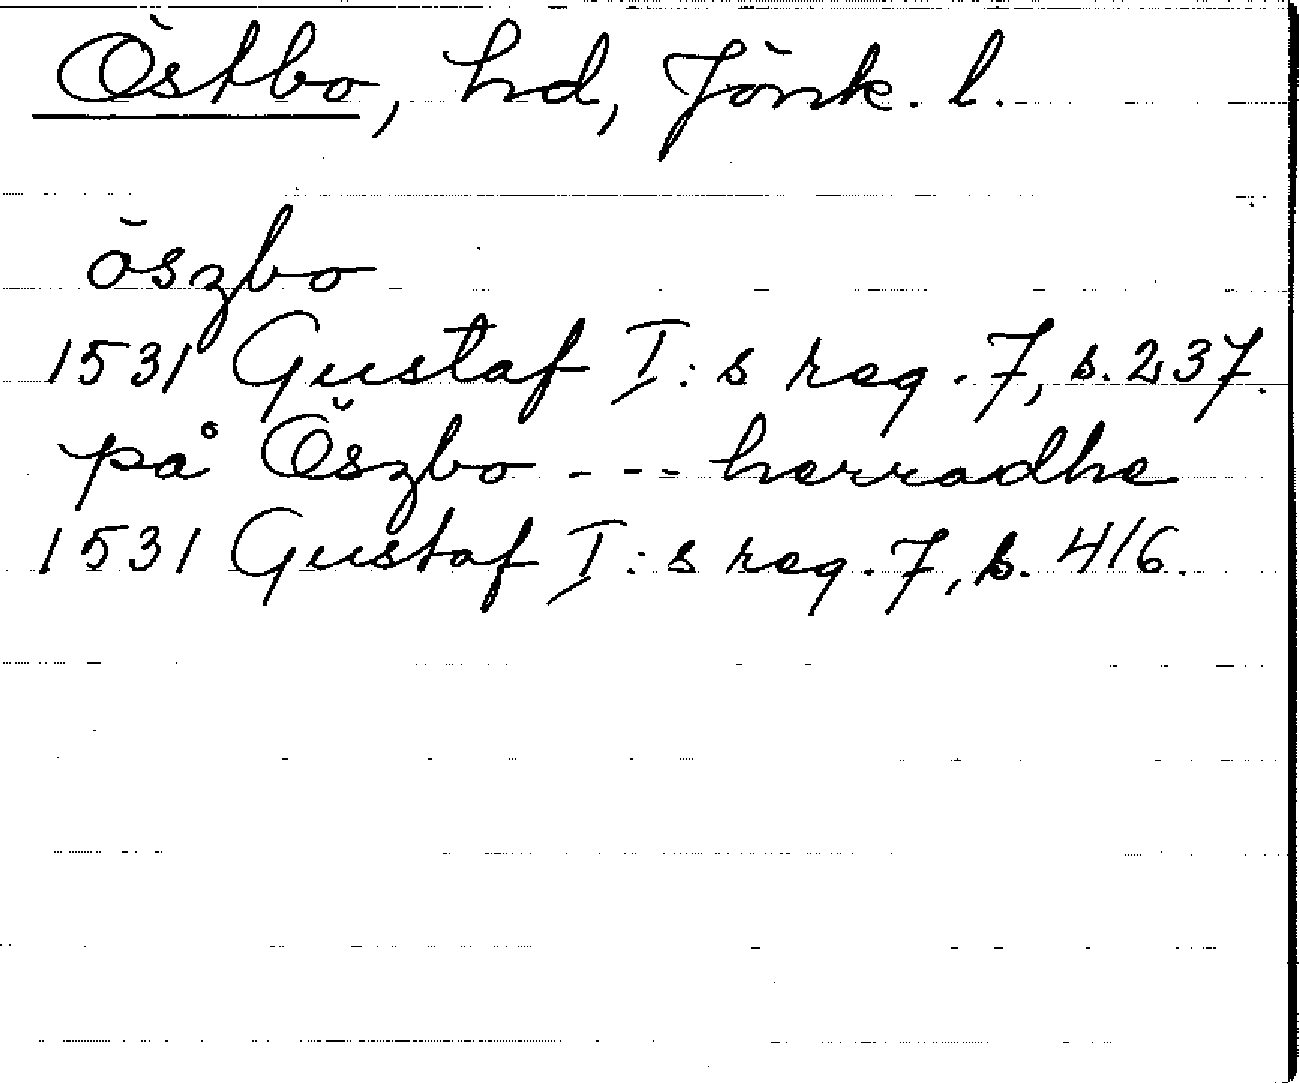 Östbo, hd, Jönk. l.
öszbo
1531 Gustaf I:s reg. 7, s. 237.
på Öszbo --- herradhe
1531 Gustaf I:s reg. 7, s. 416.